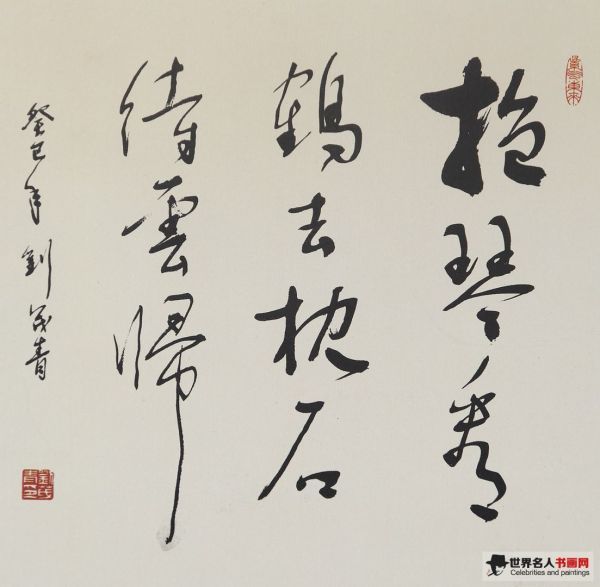 抱琴看
鶴去枕石
待雲歸
癸巳年 劉 青
世界名人书画网
Celebrities and paintings